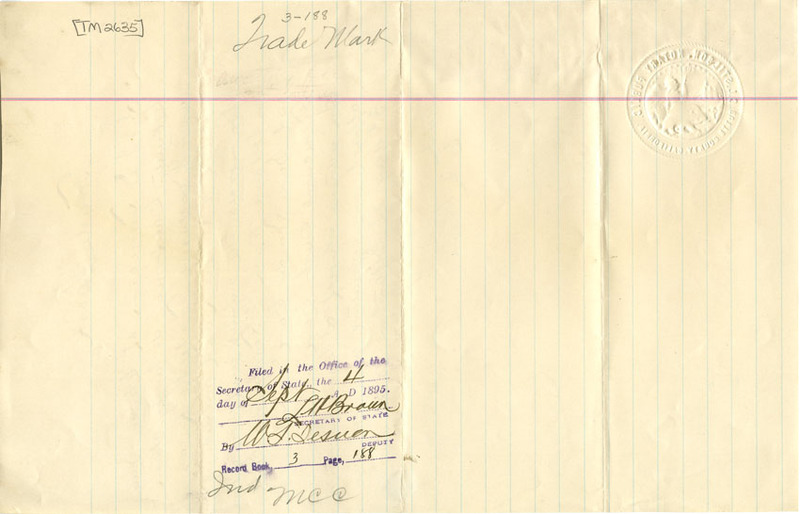 [TM2635]
3-188
Trade Mark
NOTARY PUBLIC
Filed in the Office of the
Secretary of State, the 4
day of Sept A. D 1895.
L H Brown
SECRETARY OF STATE
By W. F.
DEPUTY
Record Book, 3 Page, 188
Ind MCC